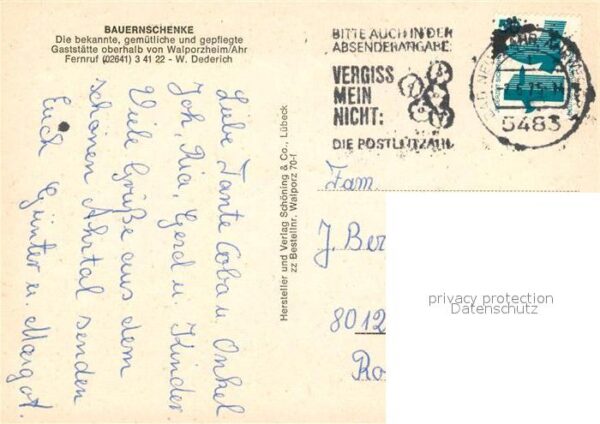 BAUERNSCHENKE
Die bekannte, gemütliche und gepflegte
Gaststätte oberhalb von Walporzheim/Ahr
Fernruf (02641) 3 41 22 - W. Dederich
Liebe Tante Coba u. Onkel
Joh, Ria, Gerd u. Kinder
Viele Grüße aus dem
schönen Ahrtal senden
Euch Günter u. Margot.
Hersteller und Verlag Schöning & Co., Lübeck
zz Bestellnr. Walporz 70-f
BITTE AUCH IN DER
ABSENDERANGABE:
VERGISS
MEIN
NICHT:
DIE POSTLEITZAHL
5483
Fam
J. Ber
8012
Ro
privacy protection
Datenschutz